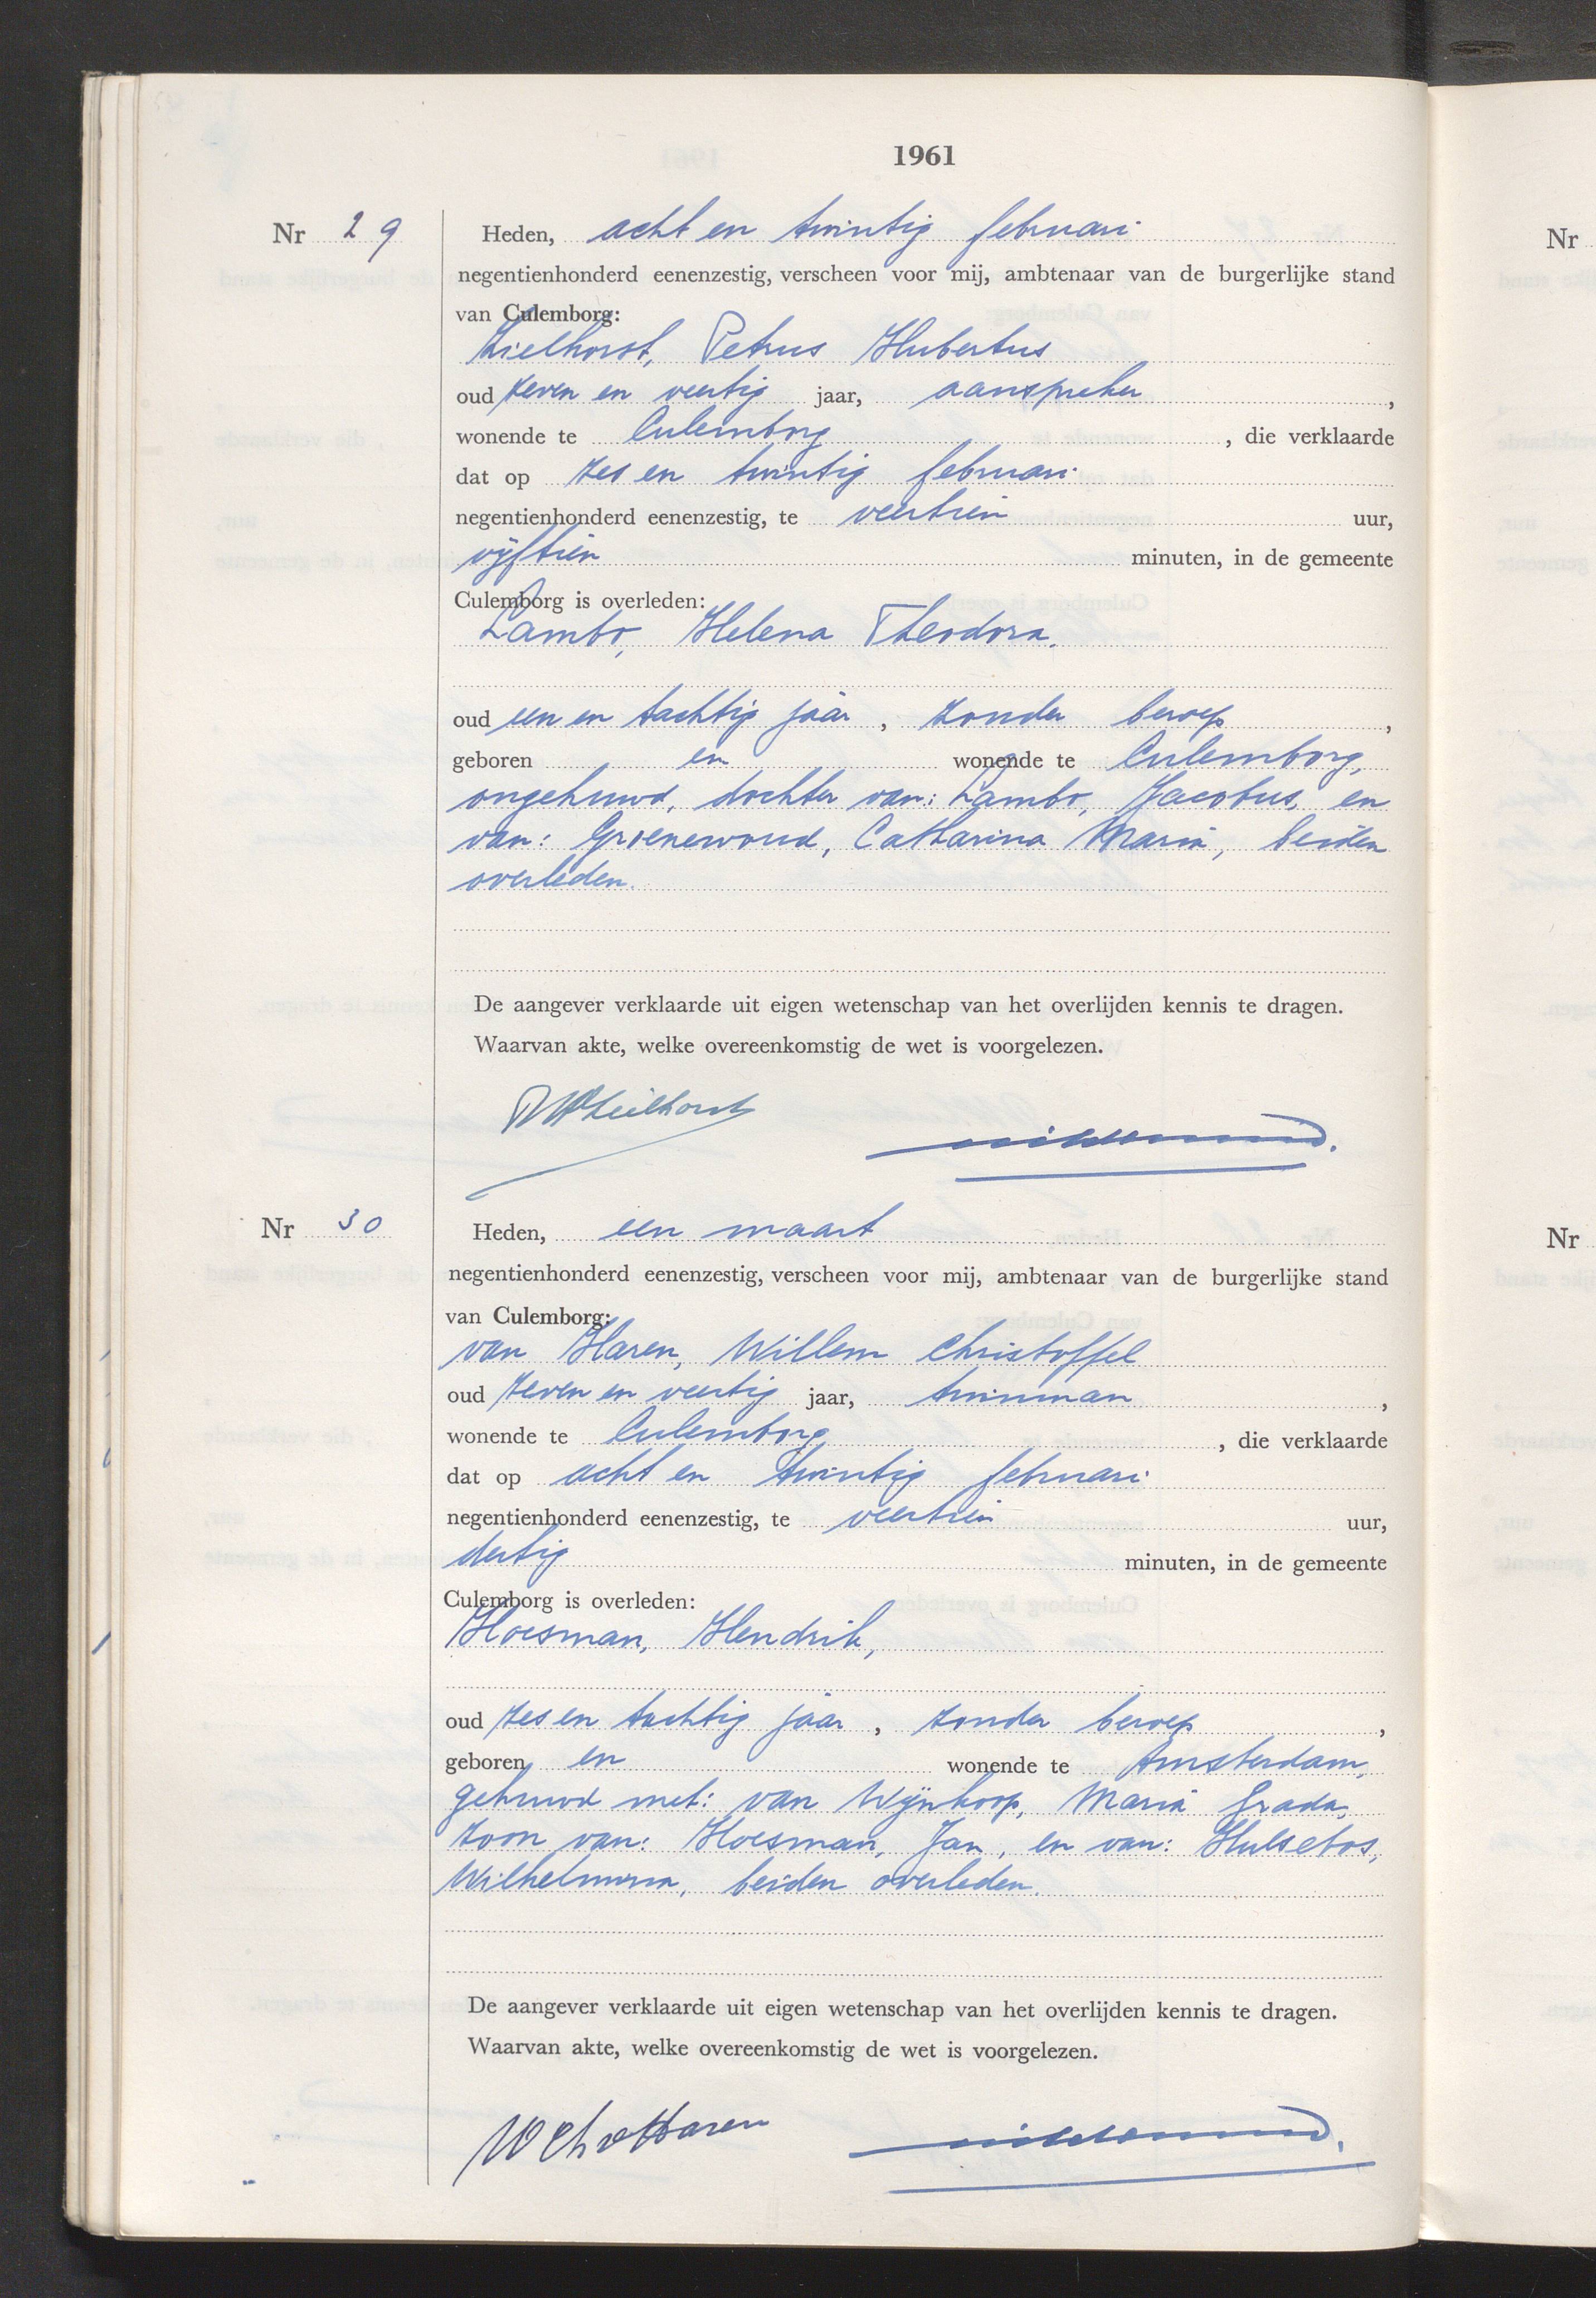 1961
Nr 29
Heden, acht en twintig februari
negentienhonderd eenenzestig, verscheen voor mij, ambtenaar van de burgerlijke stand
van Culemborg:
Zielhorst, Petrus Hubertus
oud zeven en veertig jaar, aanspreker,
wonende te Culemborg, die verklaarde
dat op zes en twintig februari
negentienhonderd eenenzestig, te veertien uur,
vijftien minuten, in de gemeente
Culemborg is overleden:
Lambo, Helena Theodora.
oud een en tachtig jaar, zonder beroep,
geboren en wonende te Culemborg,
ongehuwd, dochter van: Lambo, Jacobus, en
van: Groenewoud, Catharina Maria, beiden
overleden.
De aangever verklaarde uit eigen wetenschap van het overlijden kennis te dragen.
Waarvan akte, welke overeenkomstig de wet is voorgelezen.
Nr 30
Heden, een maart
negentienhonderd eenenzestig, verscheen voor mij, ambtenaar van de burgerlijke stand
van Culemborg:
van Haren, Willem Christoffel
oud zeven en veertig jaar, tuinman,
wonende te Culemborg, die verklaarde
dat op acht en twintig februari
negentienhonderd eenenzestig, te veertien uur,
dertig minuten, in de gemeente
Culemborg is overleden:
Hoesman, Hendrik,
oud zes en tachtig jaar, zonder beroep,
geboren en wonende te Amsterdam,
gehuwd met: van Wijnkoop, Maria Grada,
zoon van: Hoesman, Jan, en van: Hulsebos,
Wilhelmina, beiden overleden.
De aangever verklaarde uit eigen wetenschap van het overlijden kennis te dragen.
Waarvan akte, welke overeenkomstig de wet is voorgelezen.
W Ch v Haren
Nr
Nr